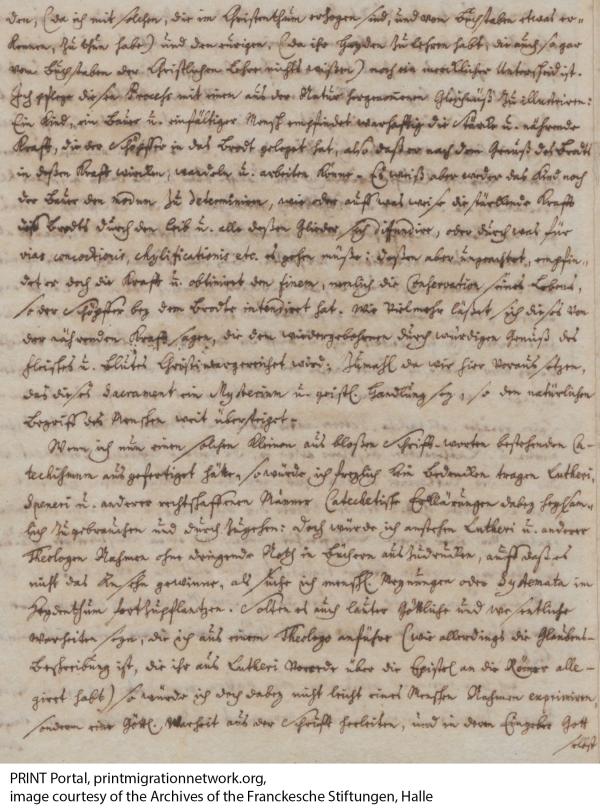 den, (da ich mit solchen, die im Christenthum erzogen sind, und vom Buchstaben etwas er-
kennen, zu thun habe) und den eurigen, (da ihr Heyden zu lehren habt, die auch sogar
vom Buchstaben der Christlichen Lehre nichts wißen) noch ein mercklicher Unterscheid ist.
Ich pflege diesen Process mit einem aus der Natur hergenommenen Gleichnüß zu illustriren:
Ein Kind, ein Bauer u. einfältiger Mensch empfindet warhaftig die Stärke u. nährende
Kraft, die der Schöpffer in das Brodt gelegt hat, also daß er nach dem Genuß des Brodts
in deßen Kraft wircken, wandeln u. arbeiten könne. Es weiß aber weder das Kind noch
der Bauer den modum zu determiniren, wie oder auff was weise die stärckende Kraft
des Brodts durch den Leib u. alle deßen Glieder sich diffundire, oder durch was für
vias concoctionis, chylificationis etc. es gehen müße: deßen aber ungeachtet, empfin-
det er doch die Kraft u. obtiniret den finem, nemlich die Conservation seines Lebens,
so der Schöpffer bey dem Brodte intendiret hat. Wie vielmehr läßet sich dieses von
der nährenden Kraft sagen, die den wiedergebohrnen durch würdigen Genuß des
Fleisches u. Blutes Christi dargereichet wird; zumahl da wir hier voraus setzen,
daß dieses Sacrament ein Mysterium u. geistl. Handlung sey, so den natürlichen
Begriff des Menschen weit übersteiget.
Wenn ich nun einen solchen kleinen aus bloßen Schrift-worten bestehenden Ca-
techismum ausgefertiget hätte, so würde ich freylich kein Bedencken tragen Lutheri,
Speneri u. anderer rechtschaffenen Männer Catechetische Erklärungen dabey
zu gebrauchen und durch zugehen: Doch würde ich anstehen Lutheri u. anderer
Theologen Nahmen ohne dringende Noth in Büchern auszudrucken, auff daß es
nicht das Ansehn gewinne, als suche ich menschl. Meynungen oder Systemata im
Heydenthum fortzupflantzen. Solten es auch lauter Göttliche und wesentliche
Warheiten seyn, die ich aus einem Theologo anführe (wie allerdings die Glaubens-
Beschreibung ist, die ihr aus Lutheri Vorrede über die Epistel an die Römer alle-
giret habt) so würde ich doch dabey nicht leicht eines Menschen Nahmen exprimiren,
sondern eine Göttl. Warheit aus der Schrift herleiten, und in dem Eingeber Gott
selbst
PRINT Portal, printmigrationnetwork.org,
image courtesy of the Archives of the Franckesche Stiftungen, Halle